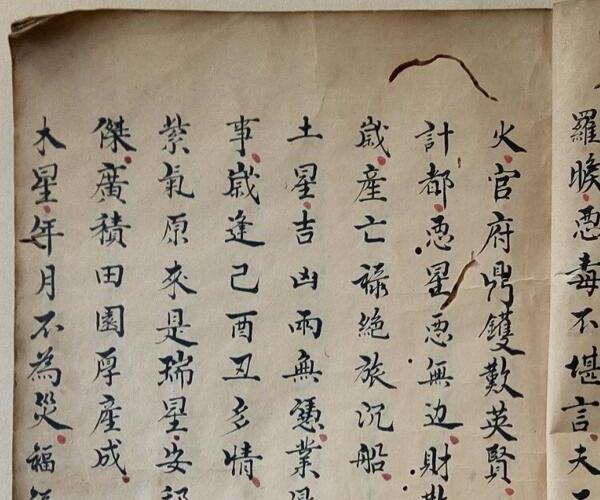 羅睺惡毒不堪言夫
火官府鼎鑊歎英賢
計都惡星惡無边財
歲產亡祿絕旅沉船
土星吉凶兩無憑業
事歲逢己酉丑多情
紫氣原來是瑞星安
傑廣積田園厚產成
木星年月不為災福